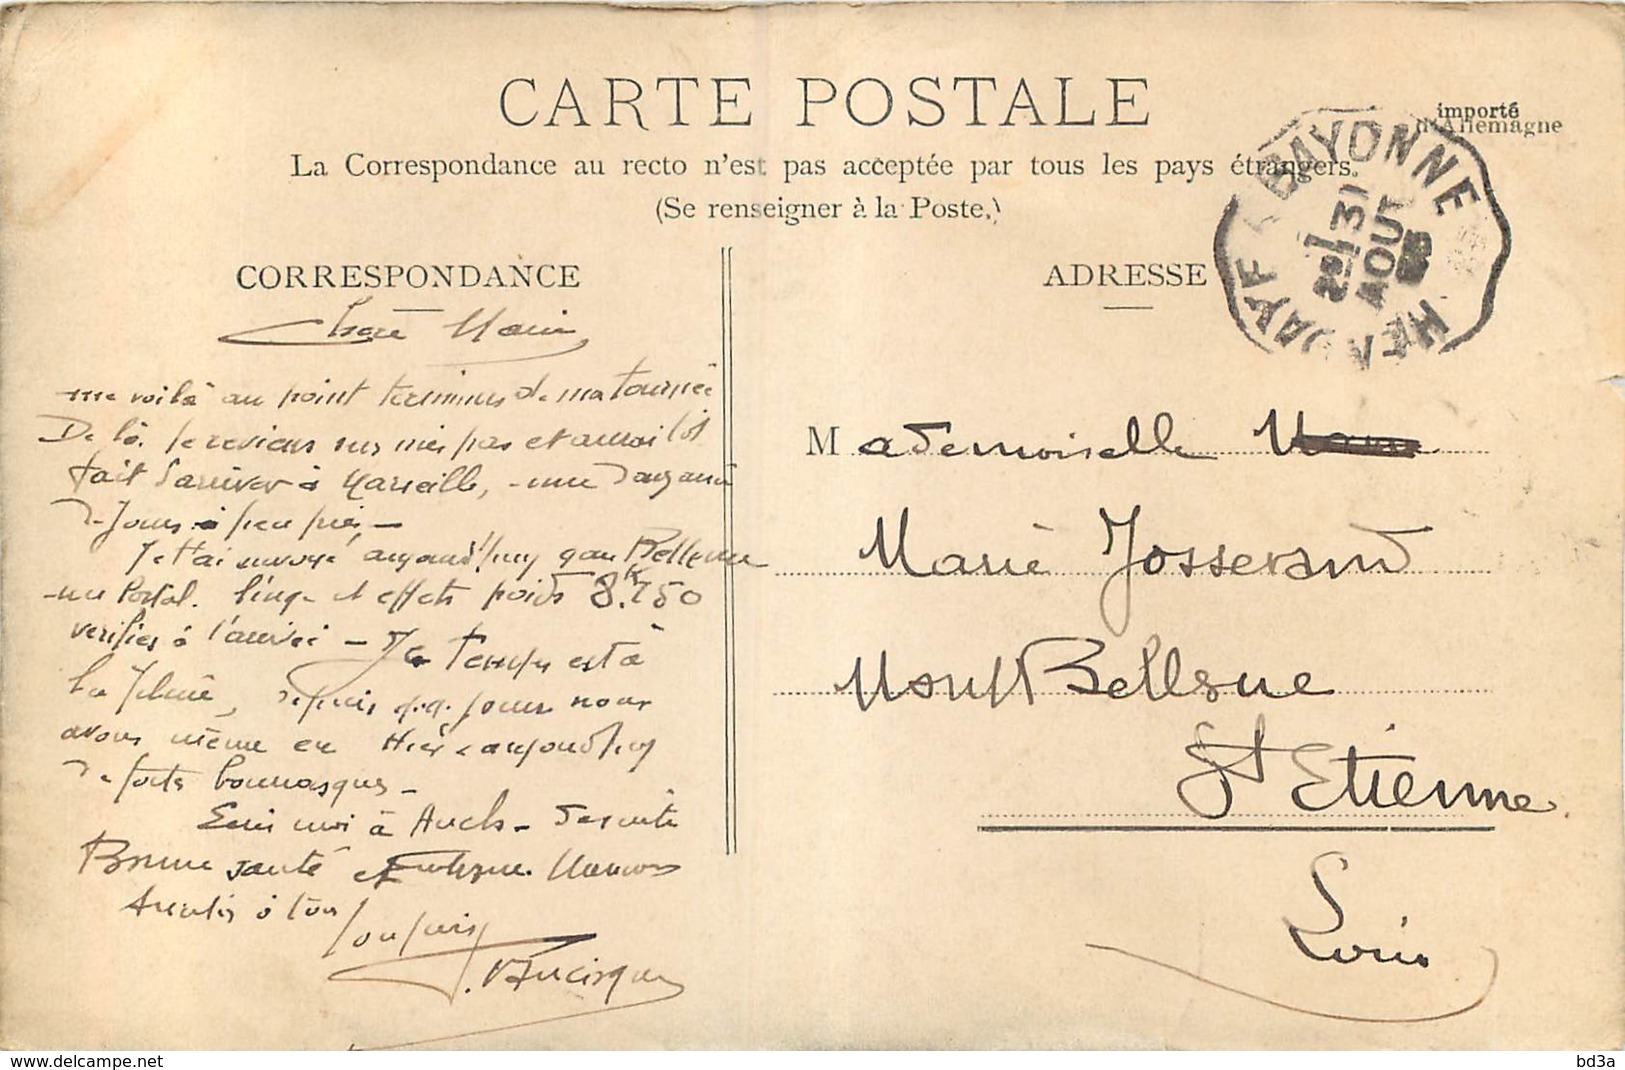 CARTE POSTALE
importé
d'Allemagne
La Correspondance au recto n'est pas acceptée par tous les pays étrangers.
(Se renseigner à la Poste.)
HENDAYE A BAYONNE
31
AOUT
CORRESPONDANCE
Chère Marie
me voilà au point terminus de ma tournée
De là je reviens sur mes pas et aurai tôt
fait d'arriver à Marseille, une
de jours à peu près,—
Je t'ai envoyé aujourd'hui gare Bellevue
un Postal. linge et effets poids 8.K750
vérifies à l'arrivée — Le Temps est à
la pluie, depuis q.q. jours nous
avons même eu Hier & aujourd'huy
de fortes bourrasques—
Ecris moi à Auch — de suite
Bonne santé et
à tous
Toujours
ADRESSE
Mademoiselle
Marie Josserand
Bellevue
St Etienne
Loire
www.delcampe.net
bd3a